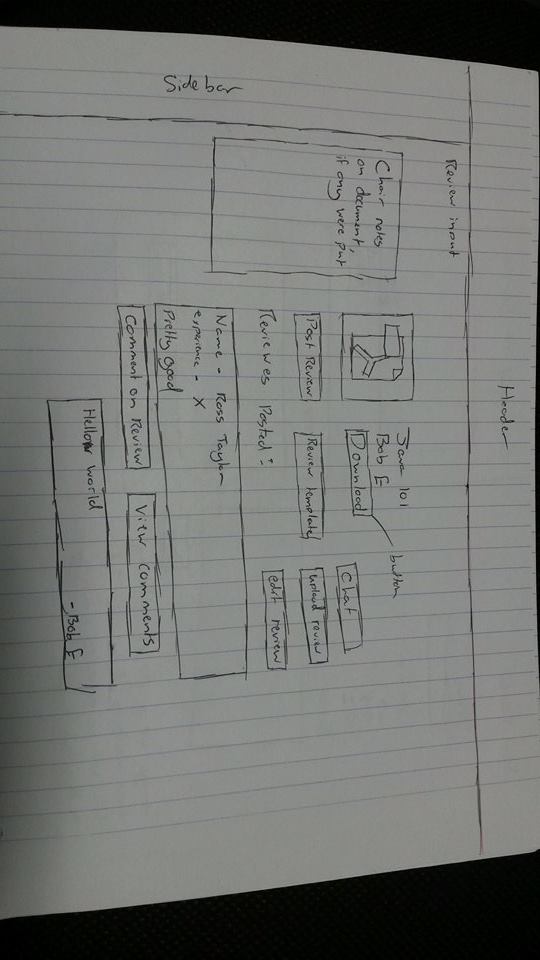 Header
Sidebar
Review input
Chair notes
on document,
if any were put
Java 101
Bob E
Download
button
Chat
Post Review
Review template
upload review
edit review
Reviewes Posted:
Name - Ross Taylor
experience - X
Pretty good
Comment on Review
View comments
Hello world
- Bob E